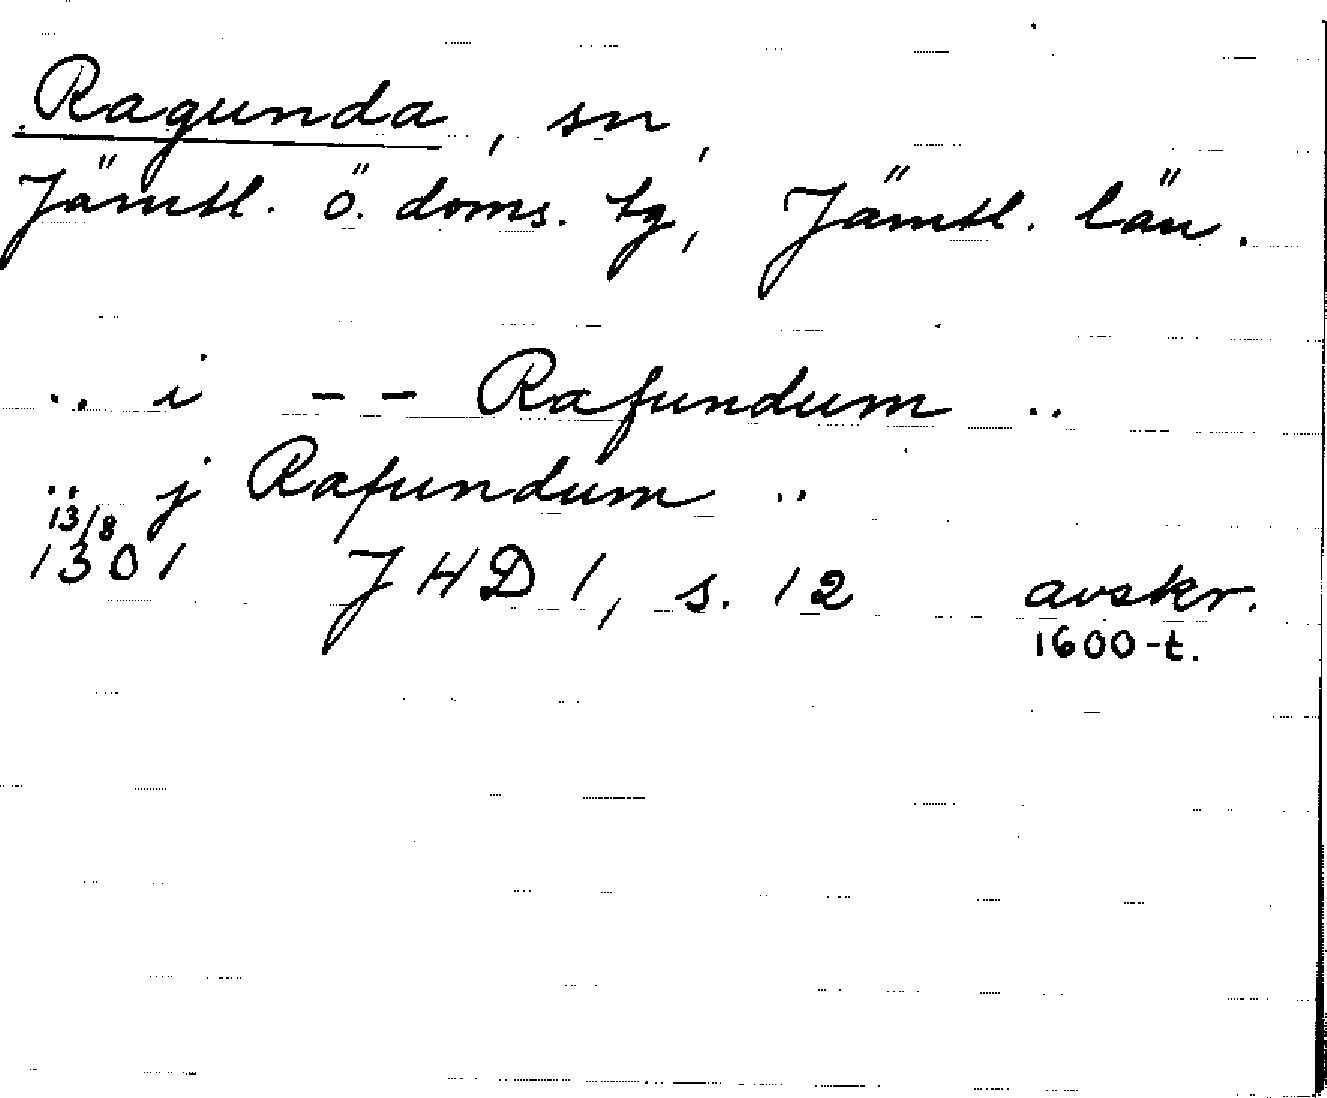 Ragunda, sn,
Jämtl. ö. doms. tg, Jämtl. län.
.. i - - Rafundum ..
.. j Rafundum ..
13/8
1301 JHD 1, s. 12 avskr.
1600-t.